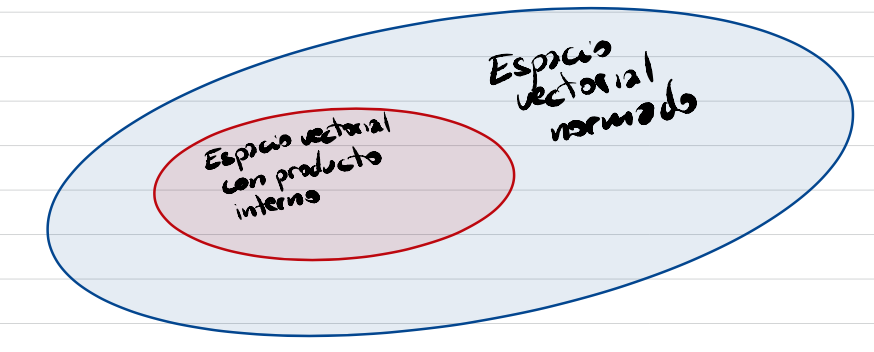 Espacio
vectorial
normado
Espacio vectorial
con producto
interno